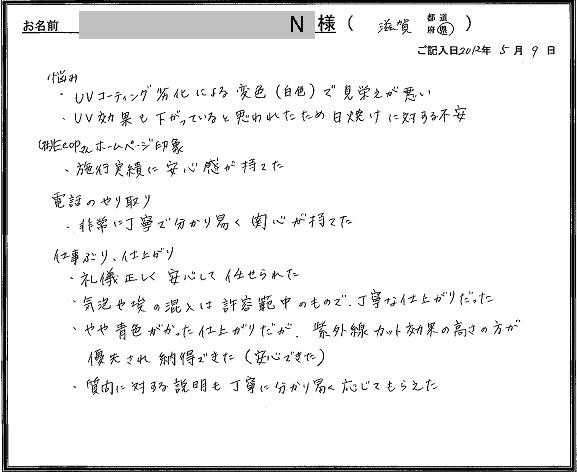 お名前 N 様 ( 滋賀 都道府県 )
ご記入日2012年 5月 9日
悩み
・UVコーティング劣化による変色(白色)で見栄えが悪い
・UV効果も下がっていると思われたため日焼けに対する不安
(株)Ecopさんホームページ印象
・施行実績に安心感が持てた
電話のやり取り
・非常に丁寧で分かり易く関心が持てた
仕事ぶり、仕上がり
・礼儀正しく安心して任せられた
・気泡や埃の混入は許容範中のもので、丁寧な仕上がりだった
・やや青色がかった仕上がりだが、紫外線カット効果の高さの方が
優先され納得できた(安心できた)
・質問に対する説明も丁寧に分かり易く応じてもらえた